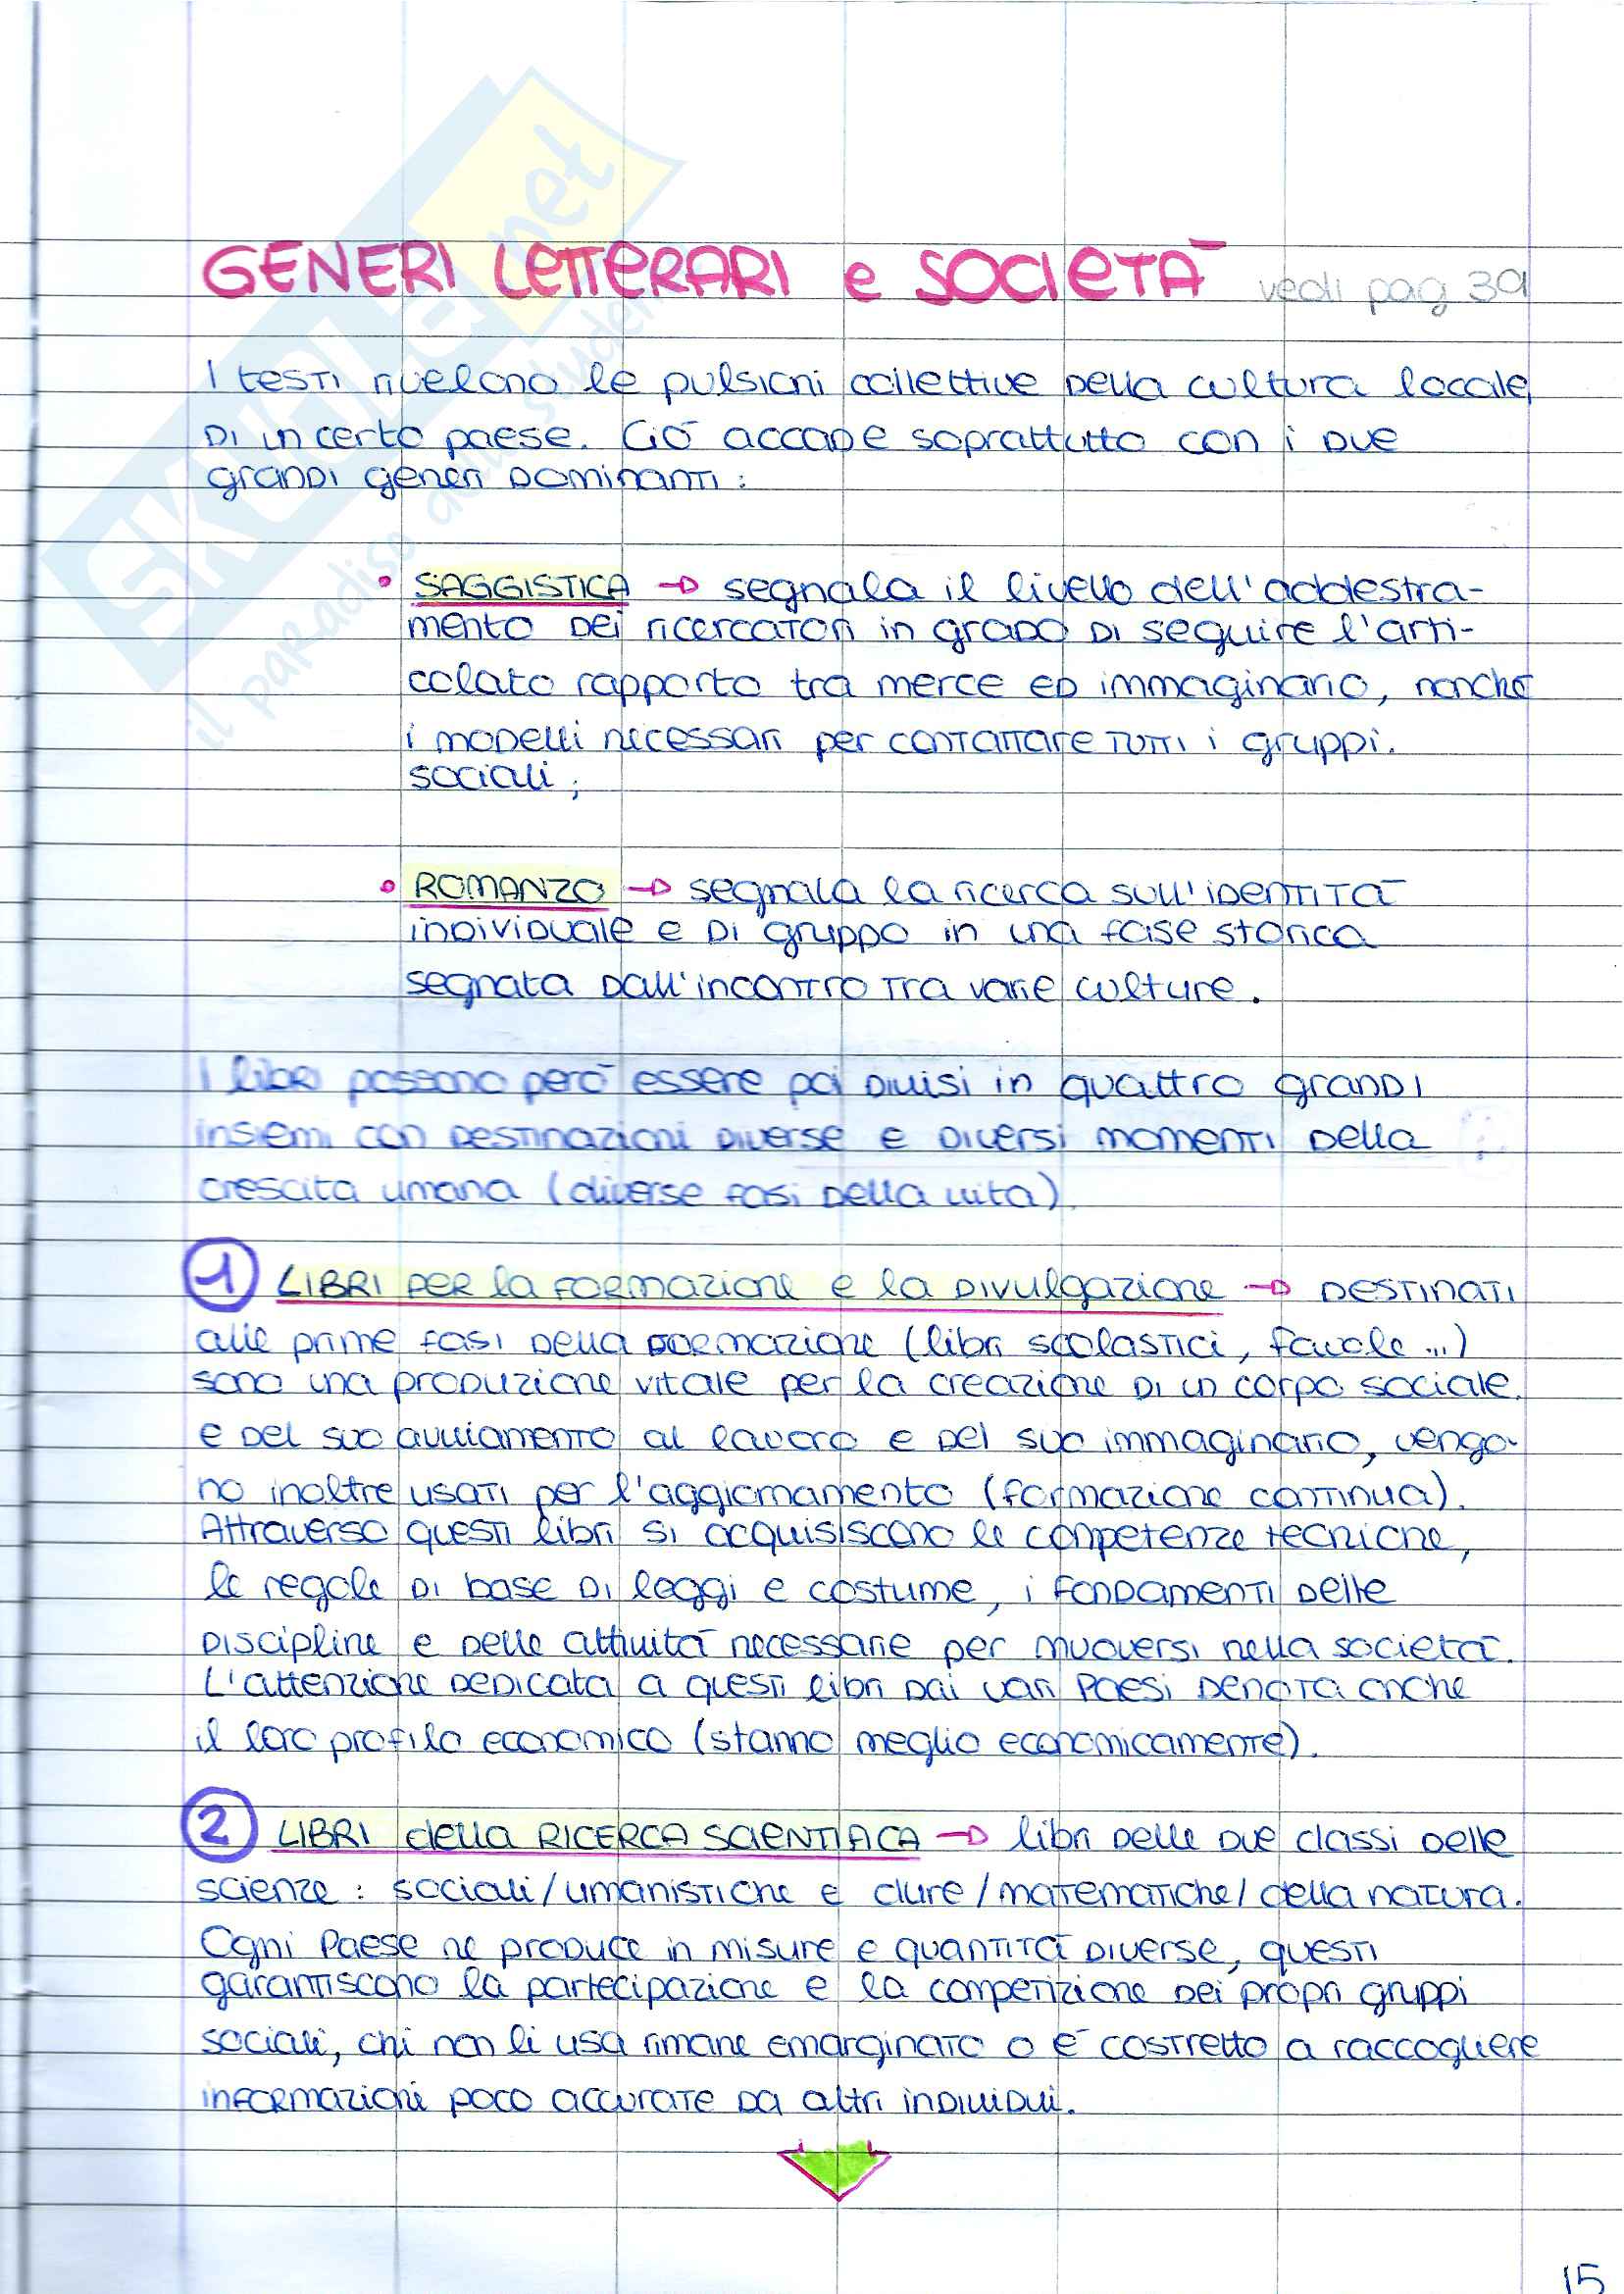 GENERI LETTERARI e SOCIETÀ vedi pag 39
I testi rivelano le pulsioni collettive della cultura locale
di un certo paese. Ciò accade soprattutto con i due
grandi generi dominanti:
• SAGGISTICA → segnala il livello dell'addestra-
mento dei ricercatori in grado di seguire l'arti-
colato rapporto tra merce ed immaginario, nonché
i modelli necessari per contattare tutti i gruppi.
sociali;
• ROMANZO → segnala la ricerca sull'identità
individuale e di gruppo in una fase storica
segnata dall'incontro tra varie culture.
I libri possono però essere poi divisi in quattro grandi
insiemi con destinazioni diverse e diversi momenti della
crescita umana (diverse fasi della vita).
1 LIBRI PER la FORMAZIONE e la DIVULGAZIONE → DESTINATI
alle prime fasi della formazione (libri scolastici, favole...)
sono una produzione vitale per la creazione di un corpo sociale.
e del suo avviamento al lavoro e del suo immaginario, vengo-
no inoltre usati per l'aggiornamento (formazione continua).
Attraverso questi libri si acquisiscono le competenze tecniche,
le regole di base di leggi e costume, i fondamenti delle
discipline e delle attività necessarie per muoversi nella società.
L'attenzione dedicata a questi libri dai vari Paesi denota anche
il loro profilo economico (stanno meglio economicamente).
2 LIBRI della RICERCA SCIENTIFICA → libri delle due classi delle
scienze: sociali/umanistiche e dure/matematiche/della natura.
Ogni Paese ne produce in misure e quantità diverse, questi
garantiscono la partecipazione e la competizione dei propri gruppi
sociali, chi non li usa rimane emarginato o è costretto a raccogliere
informazioni poco accurate da altri individui.
15
SKUOLA.net
il paradiso dello studente